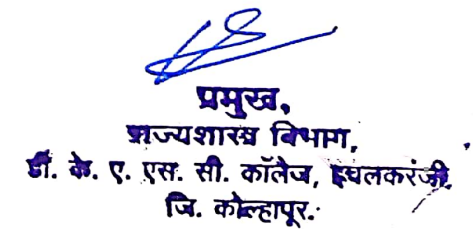 प्रमुख,
राज्यशास्त्र विभाग,
डी. के. ए. एस. सी. कॉलेज, इचलकरंजी.
जि. कोल्हापूर.